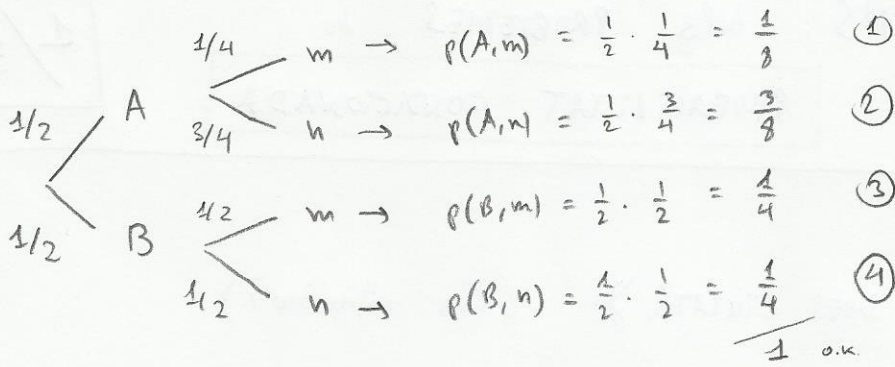 1/4 m → p(A,m) = 1/2 · 1/4 = 1/8 ①
1/2 A
3/4 n → p(A,n) = 1/2 · 3/4 = 3/8 ②
1/2 m → p(B,m) = 1/2 · 1/2 = 1/4 ③
1/2 B
1/2 n → p(B,n) = 1/2 · 1/2 = 1/4 ④
1 o.k.